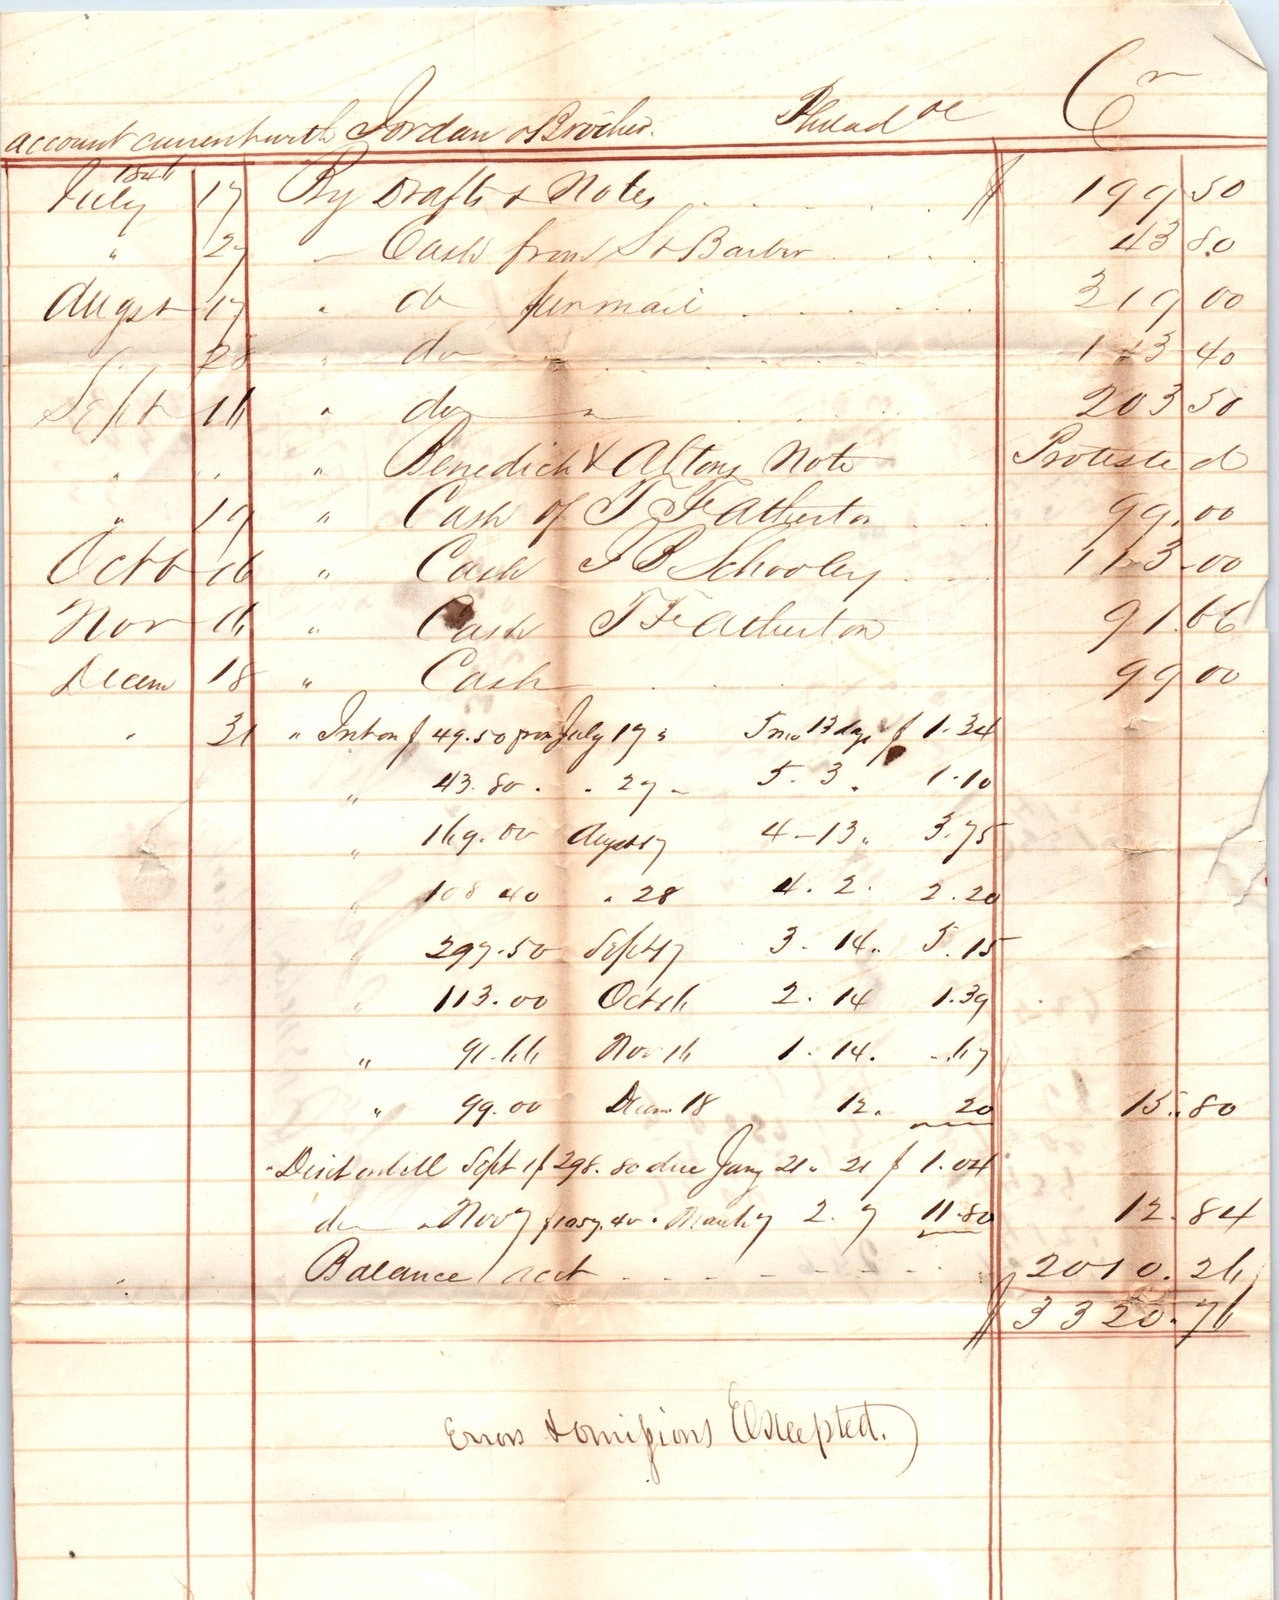 account current with Jordan & Brother. Philad Cr
1846
July 17 By Drafts & Notes $ 199 50
" 27 Cash from St Barber 43 80
Augst 17 " do per mail 319 00
28 " do " 40
Sept 16 " do " 203 50
" " " Benedick & Altons Note Protested
" 19 " Cash of T F Atherton 99.00
Octo 16 " Cash J B Schooley 113.00
Nov 16 " Cash T F Atherton 91.66
Decem 18 " Cash 99 00
" 31 " Int on $ 49.50 from July 17 " 5 mo 13 days $ 1.34
" 43.80 " 27 5. 3. 1.10
" 169.00 August 17 4-13. 3.75
" 108 40 " 28 4. 2. 2.20
" 297.50 Sept 17 3. 14. 5.15
" 113.00 Oct 16 2. 14 1.39
" 91.66 Nov 16 1. 14. .67
" 99.00 Decem 18 12. 20 15.80
" Disct on bill Sept 1 $ 298.80 due Jany 21 " 21 $ 1.04
do " Nov 7 $ 1057.40 " March 7 2. 7 11.80 12.84
Balance acct 2010.26
$ 3320.76
Errors & omissions Excepted.